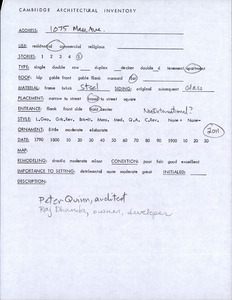 CAMBRIDGE ARCHITECTURAL INVENTORY
ADDRESS: 1075 Mass Ave.
USE: residential commercial religious
STORIES: 1 2 3 4 5
TYPE: single double row duplex decker double d tenement apartment
ROOF: hip gable front gable flank mansard flat
MATERIAL: frame brick steel SIDING: original subsequent Glass
PLACEMENT: narrow to street broad to street square
ENTRANCE: flank front side center
NeoInternational?
STYLE: L.Geo. Grk.Rev. Mans. Med. Q.A. C.Rev. None
ORNAMENT: little moderate elaborate
2011
DATE: 1790 1800 10 20 30 40 50 60 70 80 90 1900 10 20 30
MAP:
REMODELING: drastic moderate minor CONDITION: poor fair good excellent
IMPORTANCE TO SETTING: detrimental minor moderate great INITIALED:
DESCRIPTION:
Peter Quinn, architect
Raj Dhanda, owner, developer